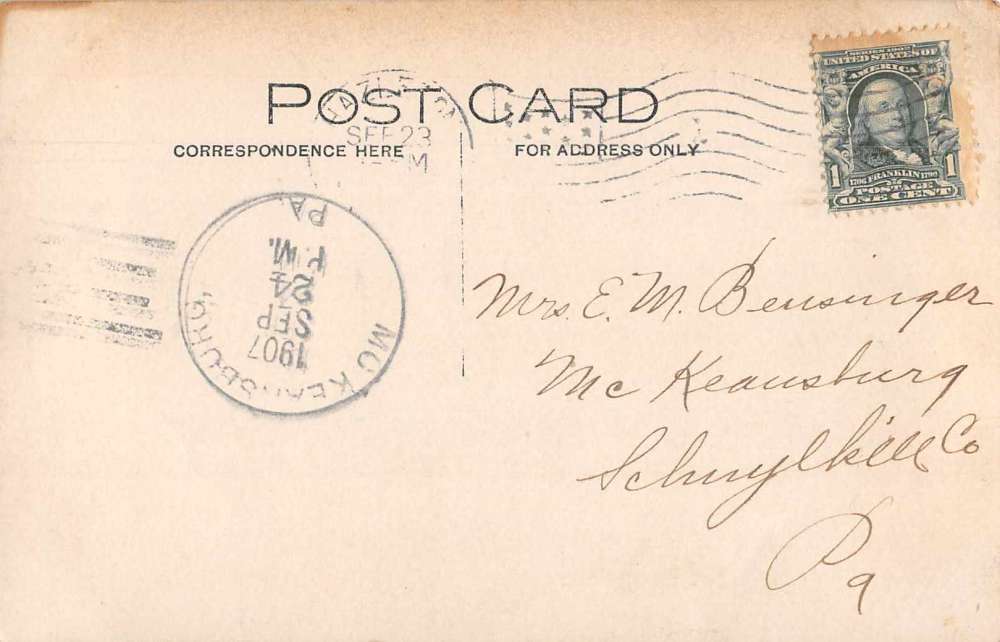 POST CARD
CORRESPONDENCE HERE
FOR ADDRESS ONLY
SEP 23
M
SERIES 1902
UNITED STATES OF
AMERICA
1706 FRANKLIN 1790
POSTAGE
1 ONE CENT 1
MC KEANSBURG,
PA.
1907
SEP
24
P.M.
Mrs. E. M. Bensinger
Mc Keansburg
Schuylkill Co
Pa